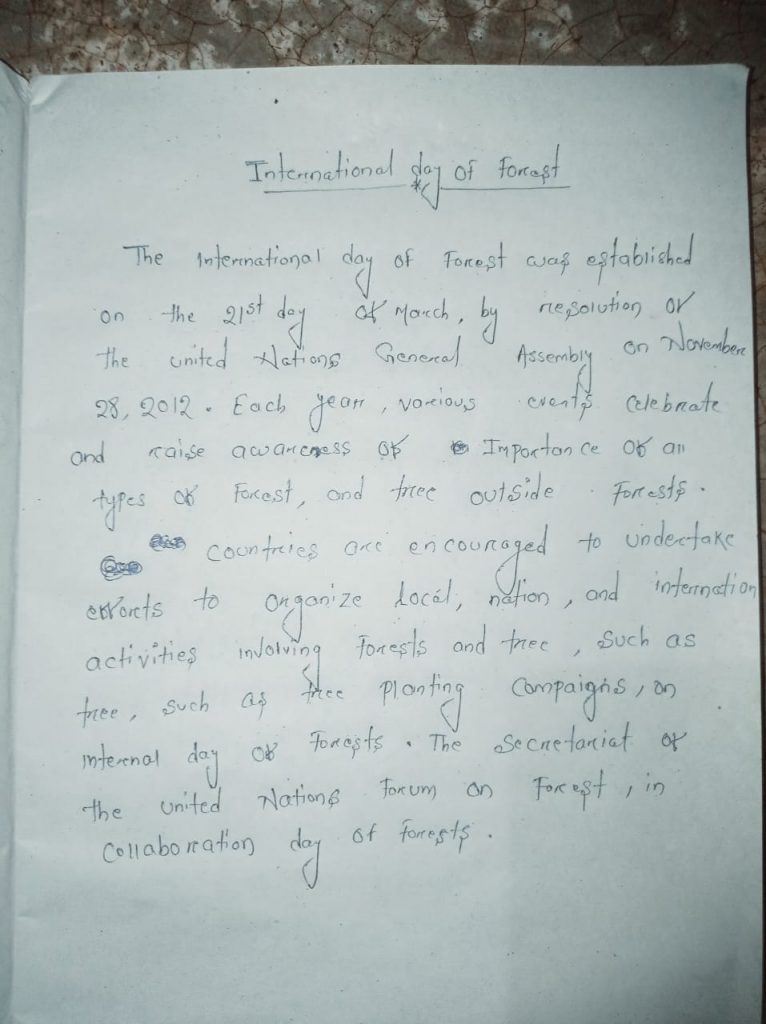 International day of Forest
The International day of Forest was established
on the 21st day of March, by resolution of
the united Nations General Assembly on November
28, 2012. Each year, various events celebrate
and raise awareness of Importance of all
types of Forest, and tree outside Forests.
countries are encouraged to undertake
efforts to organize local, nation, and internation
activities involving Forests and tree, such as
tree, such as tree planting campaigns, on
internal day of Forests. The Secretariat of
the united Nations Forum on Forest, in
collaboration day of forests.